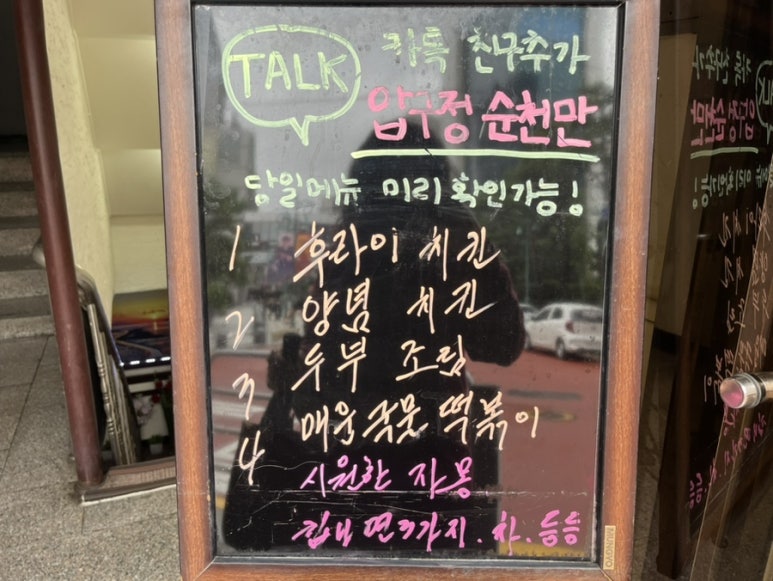 TALK 카톡 친구추가
압구정 순천만
당일메뉴 미리 확인가능!
1 후라이 치킨
2 양념 치킨
3 두부 조림
4 매운 국물 떡볶이
시원한 자몽
컵내 면 3가지 . 차 . 등등
MUNGYO